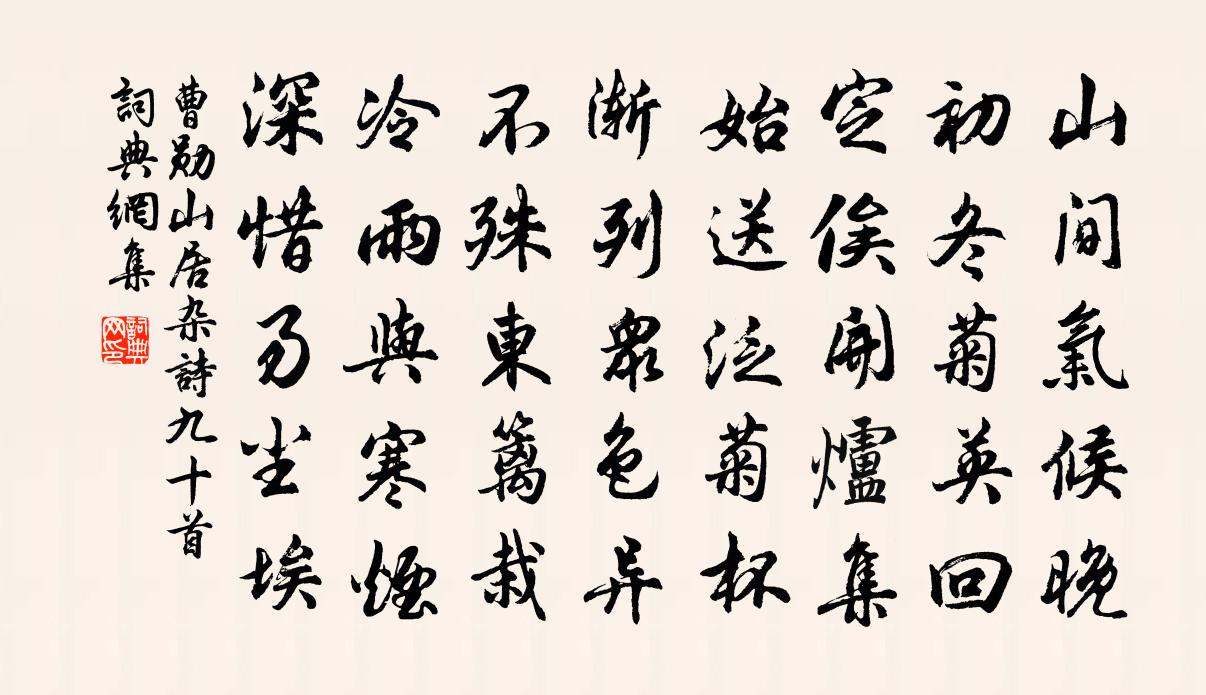 山間氣候晚
初冬菊英回
定俟開爐集
始送泛菊杯
漸列眾色异
不殊東篱栽
冷雨與寒煙
深惜易尘埃
曹勛山居杂詩九十首
詞典網集
詞典网印